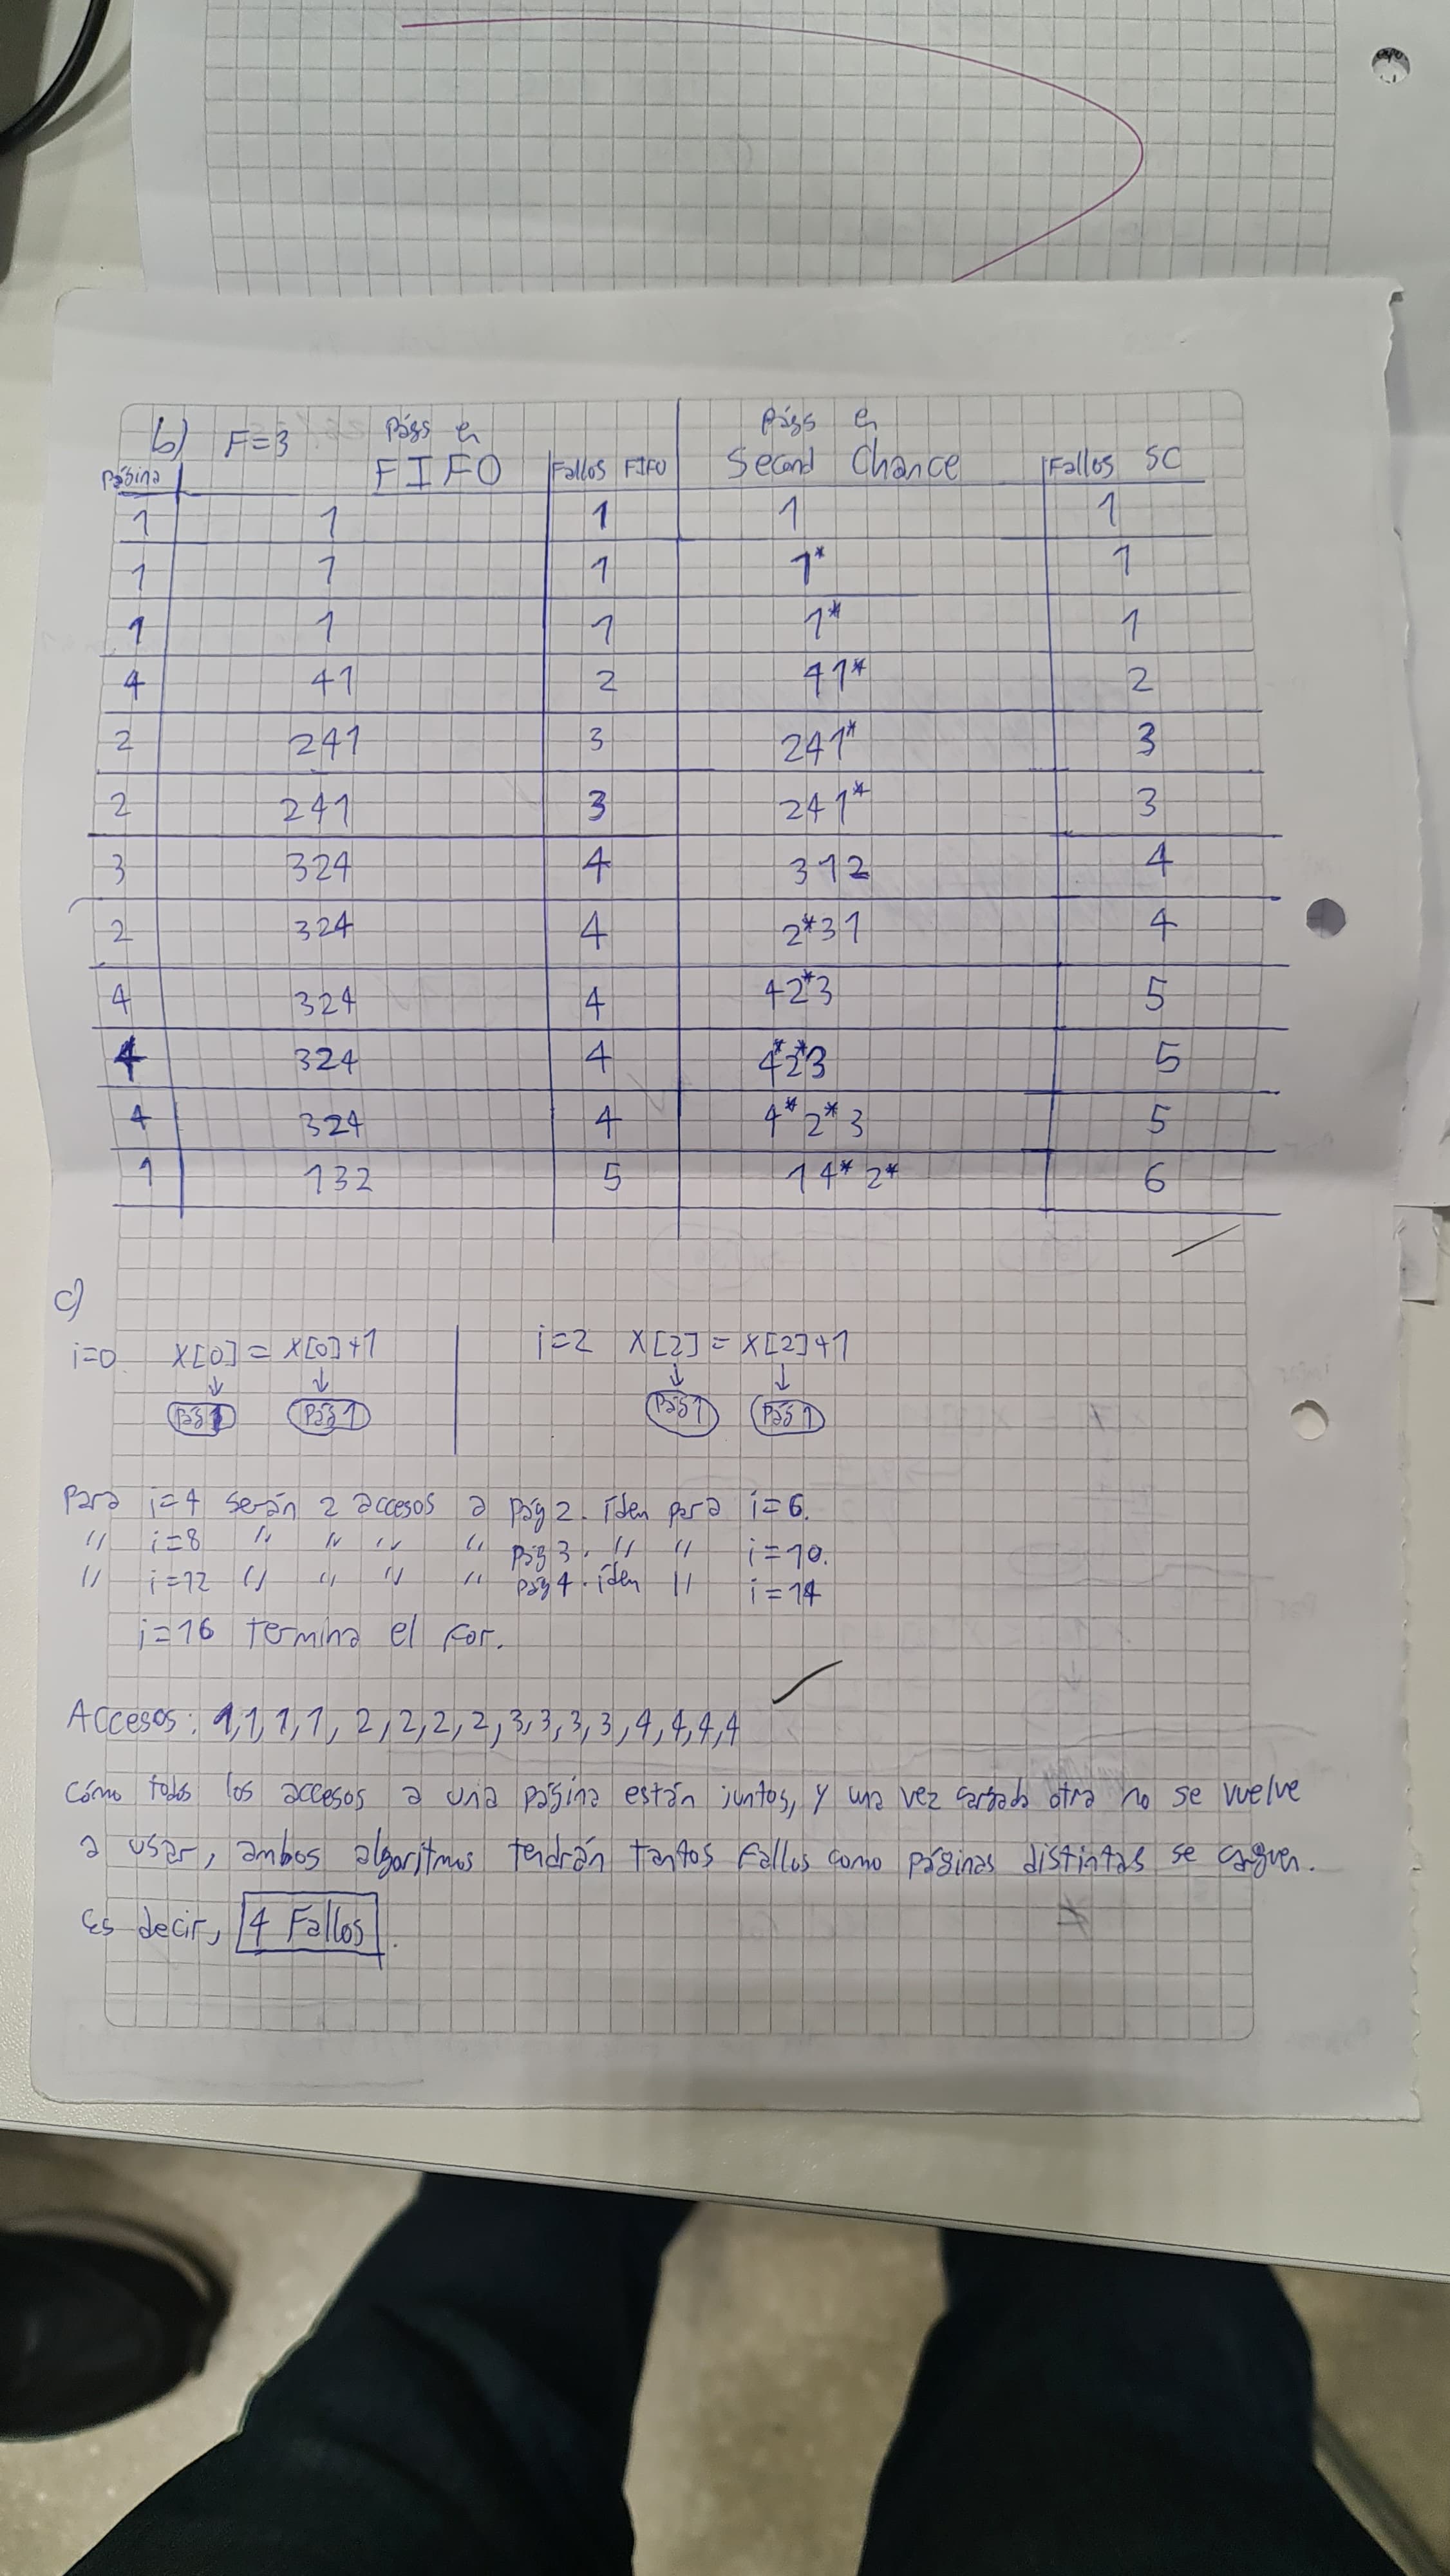 b) F=3 Págs en Págs en
Página FIFO Fallos FIFO Second Chance Fallos SC
1 1 1 1 1
1 1 1 1* 1
1 1 1 1* 1
4 41 2 41* 2
2 241 3 241* 3
2 241 3 241* 3
3 324 4 312 4
2 324 4 2*31 4
4 324 4 42*3 5
4 324 4 4*2*3 5
4 324 4 4*2*3 5
1 132 5 14*2* 6
c)
i=0 X[0] = X[0]+1 i=2 X[2] = X[2]+1
↓ ↓ ↓ ↓
Pág 1 Pág 1 Pág 1 Pág 1
Para i=4 serán 2 accesos a pág 2. ídem para i=6.
" i=8 " " " " pág 3. " " i=10.
" i=12 " " " " pág 4. ídem " i=14
i=16 termina el for.
Accesos: 1,1,1,1,2,2,2,2,3,3,3,3,4,4,4,4
Cómo todos los accesos a una página están juntos, y una vez cargada otra no se vuelve
a usar, ambos algoritmos tendrán tantos fallos como páginas distintas se carguen.
Es decir, 4 Fallos.